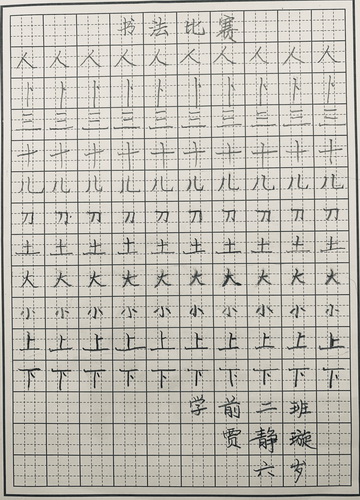 书法比赛
人人人人人人人人人人
卜卜卜卜卜卜卜卜卜卜
三三三三三三三三三三
十十十十十十十十十十
儿儿儿儿儿儿儿儿儿儿
刀刀刀刀刀刀刀刀刀刀
土土土土土土土土土土
大大大大大大大大大大
小小小小小小小小小小
上上上上上上上上上上
下下下下下下下下下下
学前二班
贾静璇
六岁